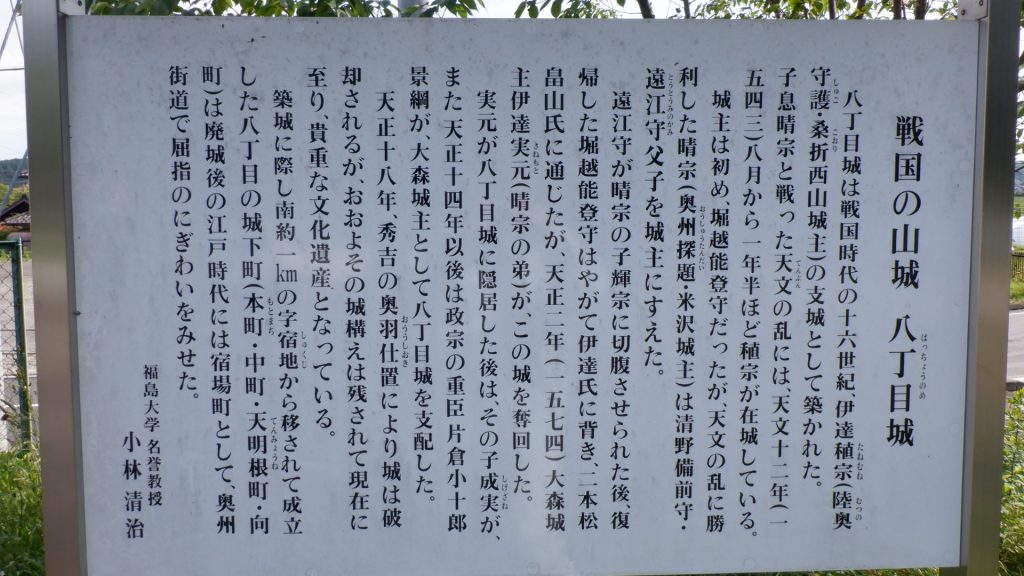 戦国の山城 八丁目城
八丁目城は戦国時代の十六世紀、伊達稙宗(陸奥
守護・桑折西山城主)の支城として築かれた。
子息晴宗と戦った天文の乱には、天文十二年(一
五四三)八月から一年半ほど稙宗が在城している。
城主は初め、堀越能登守だったが、天文の乱に勝
利した晴宗(奥州探題・米沢城主)は清野備前守・
遠江守父子を城主にすえた。
遠江守が晴宗の子輝宗に切腹させられた後、復
帰した堀越能登守はやがて伊達氏に背き、二本松
畠山氏に通じたが、天正二年(一五七四)大森城
主伊達実元(晴宗の弟)が、この城を奪回した。
実元が八丁目城に隠居した後は、その子成実が、
また天正十四年以後は政宗の重臣片倉小十郎
景綱が、大森城主として八丁目城を支配した。
天正十八年、秀吉の奥羽仕置により城は破
却されるが、おおよその城構えは残されて現在に
至り、貴重な文化遺産となっている。
築城に際し南約一kmの字宿地から移されて成立
した八丁目の城下町(本町・中町・天明根町・向
町)は廃城後の江戸時代には宿場町として、奥州
街道で屈指のにぎわいをみせた。
福島大学 名誉教授
小林清治